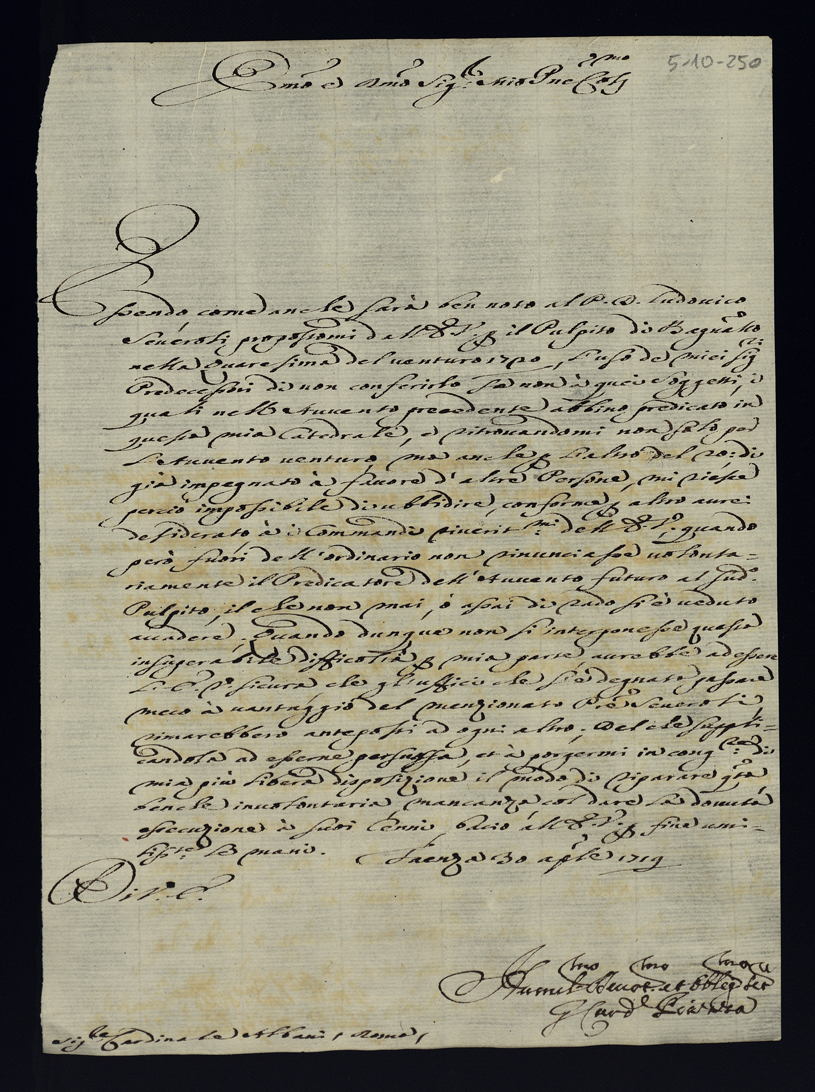 5-10-250
Emo e Rmo Sig.re Mio Pne Colmo
Essendo, come anche sarà ben noto al P. D. Ludovico
Severoli propostomi dall'E. V. p il Pulpito di Bagna.llo
nella Quaresima del venturo 1720, l'uso de miei Sig.ri
Predecessori di non conferirlo se non à quei Soggetti, i
quali nell'Avvento precedente abbino predicato in
questa mia Catedrale, e ritrovandomi non solo per
l'Avvento venturo, mà anche p l'altro del 20: di
già impegnato à favore d'altre Persone, mi riesce
perciò impossibile di ubbidire, conforme p altro aurei
desiderato à i Commandi riverit.mi dell'E. V., quando
però fuori dell'ordinario non rinunciasse volonta=
riamente il Predicatore dell'Avvento futuro al sud.o
Pulpito, il che non mai, ò assai di rado si è veduto
accadere; Quando dunque non si interponesse questa
insuperabile difficoltà p mia parte, aurebbe ad essere
L'E. V. sicura che gl'ufficii che si è degnata passare
meco à vantaggio del menzionato Pre Severoli,
rimarebbero anteposti ad ogni altro; Del che suppli=
candola ad esserne persuasa, et à porgermi in cong.re di
mia più libera disposizione il modo di riparare q.ta
benche involontaria mancanza col dare la dovuta
essecuzione à suoi Cenni, bacio all'E. V. p fine umi=
liss.te le mani. Faenza 30 ap.le 1719
Di V. E.
Humil.mo Devot.mo et Obblig.mo Ser
G Card.l Piazza
Sig.re Cardinale Albani, Roma,